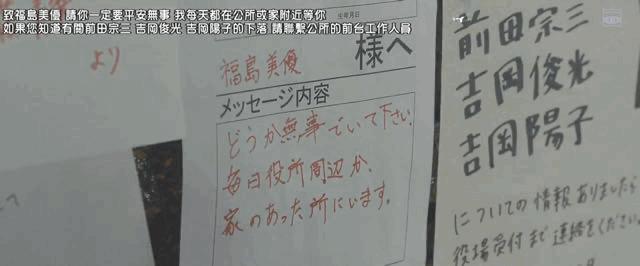 致福島美優 請你一定要平安無事 我每天都在公所或家附近等你
如果您知道有關前田宗三 吉岡俊光 吉岡陽子的下落 請聯繫公所的前台工作人員
より
福島美優
様へ
メッセージ内容
どうか無事でいて下さい。
毎日役所周辺か、
家のあった所にいます。
前田宗三
吉岡俊光
吉岡陽子
についての情報ありましたら
役場受付まで連絡をください。